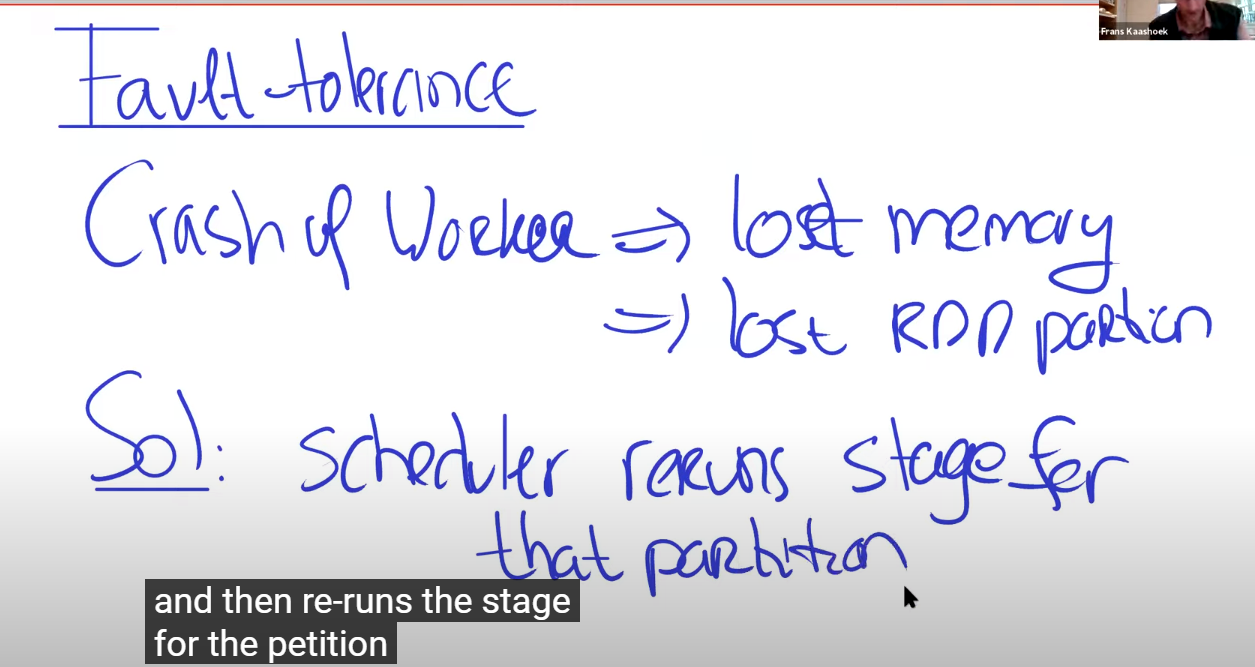 Frans Kaashoek
Fault-tolerance
Crash of Worker => lost memory
=> lost RDD partion
Sol: scheduler reruns stage for
that partition
and then re-runs the stage
for the petition